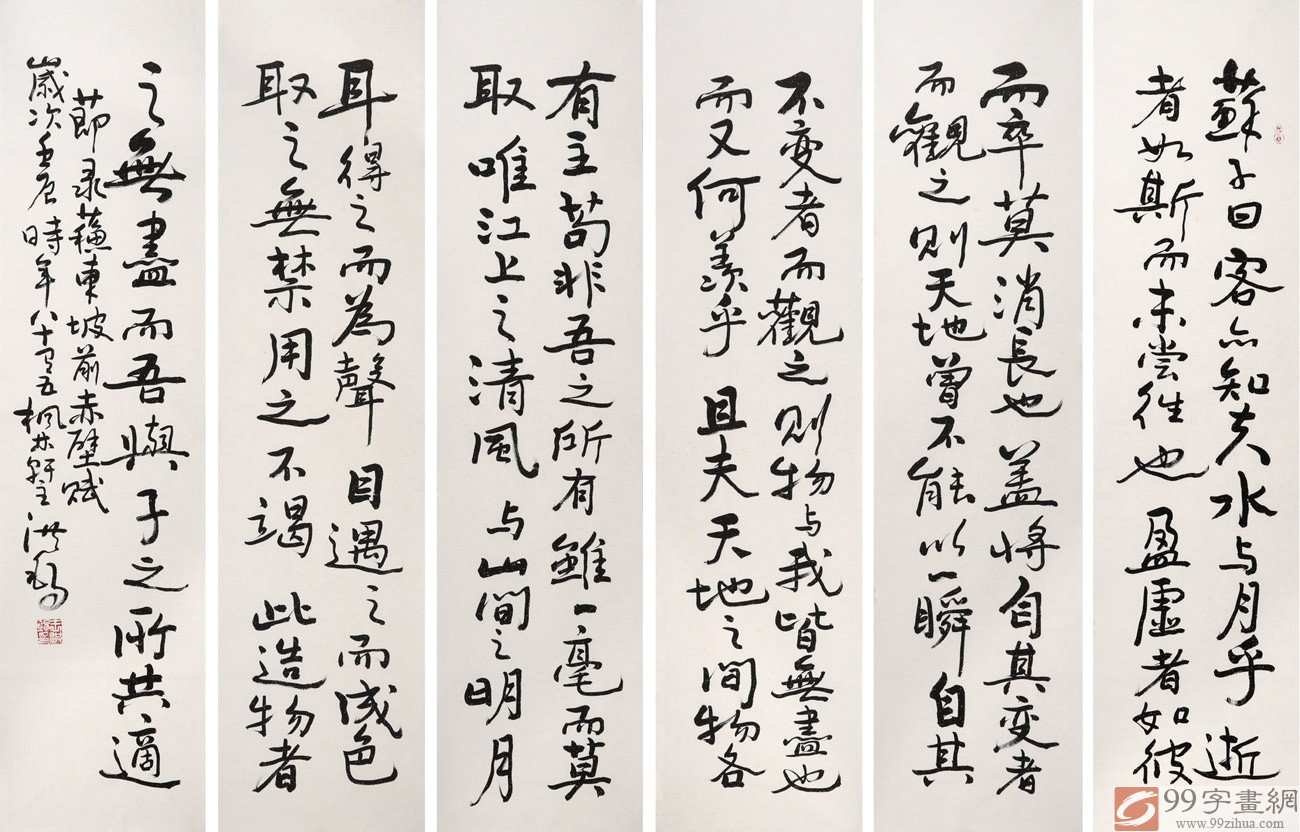 蘇子曰客亦知夫水与月乎逝
者如斯而未嘗往也盈虛者如彼
而卒莫消長也盖將自其变者
而觀之则天地曾不能以一瞬自其
不变者而觀之则物与我皆無盡也
而又何羨乎且夫天地之间物各
有主苟非吾之所有雖一毫而莫
取唯江上之清風与山间之明月
耳得之而為聲目遇之而成色
取之無禁用之不竭此造物者
之無盡而吾與子之所共適
節录蘇東坡前赤壁赋
歲次壬辰時年八十有五楓林軒主洪
99字畫網
www.99zihua.com